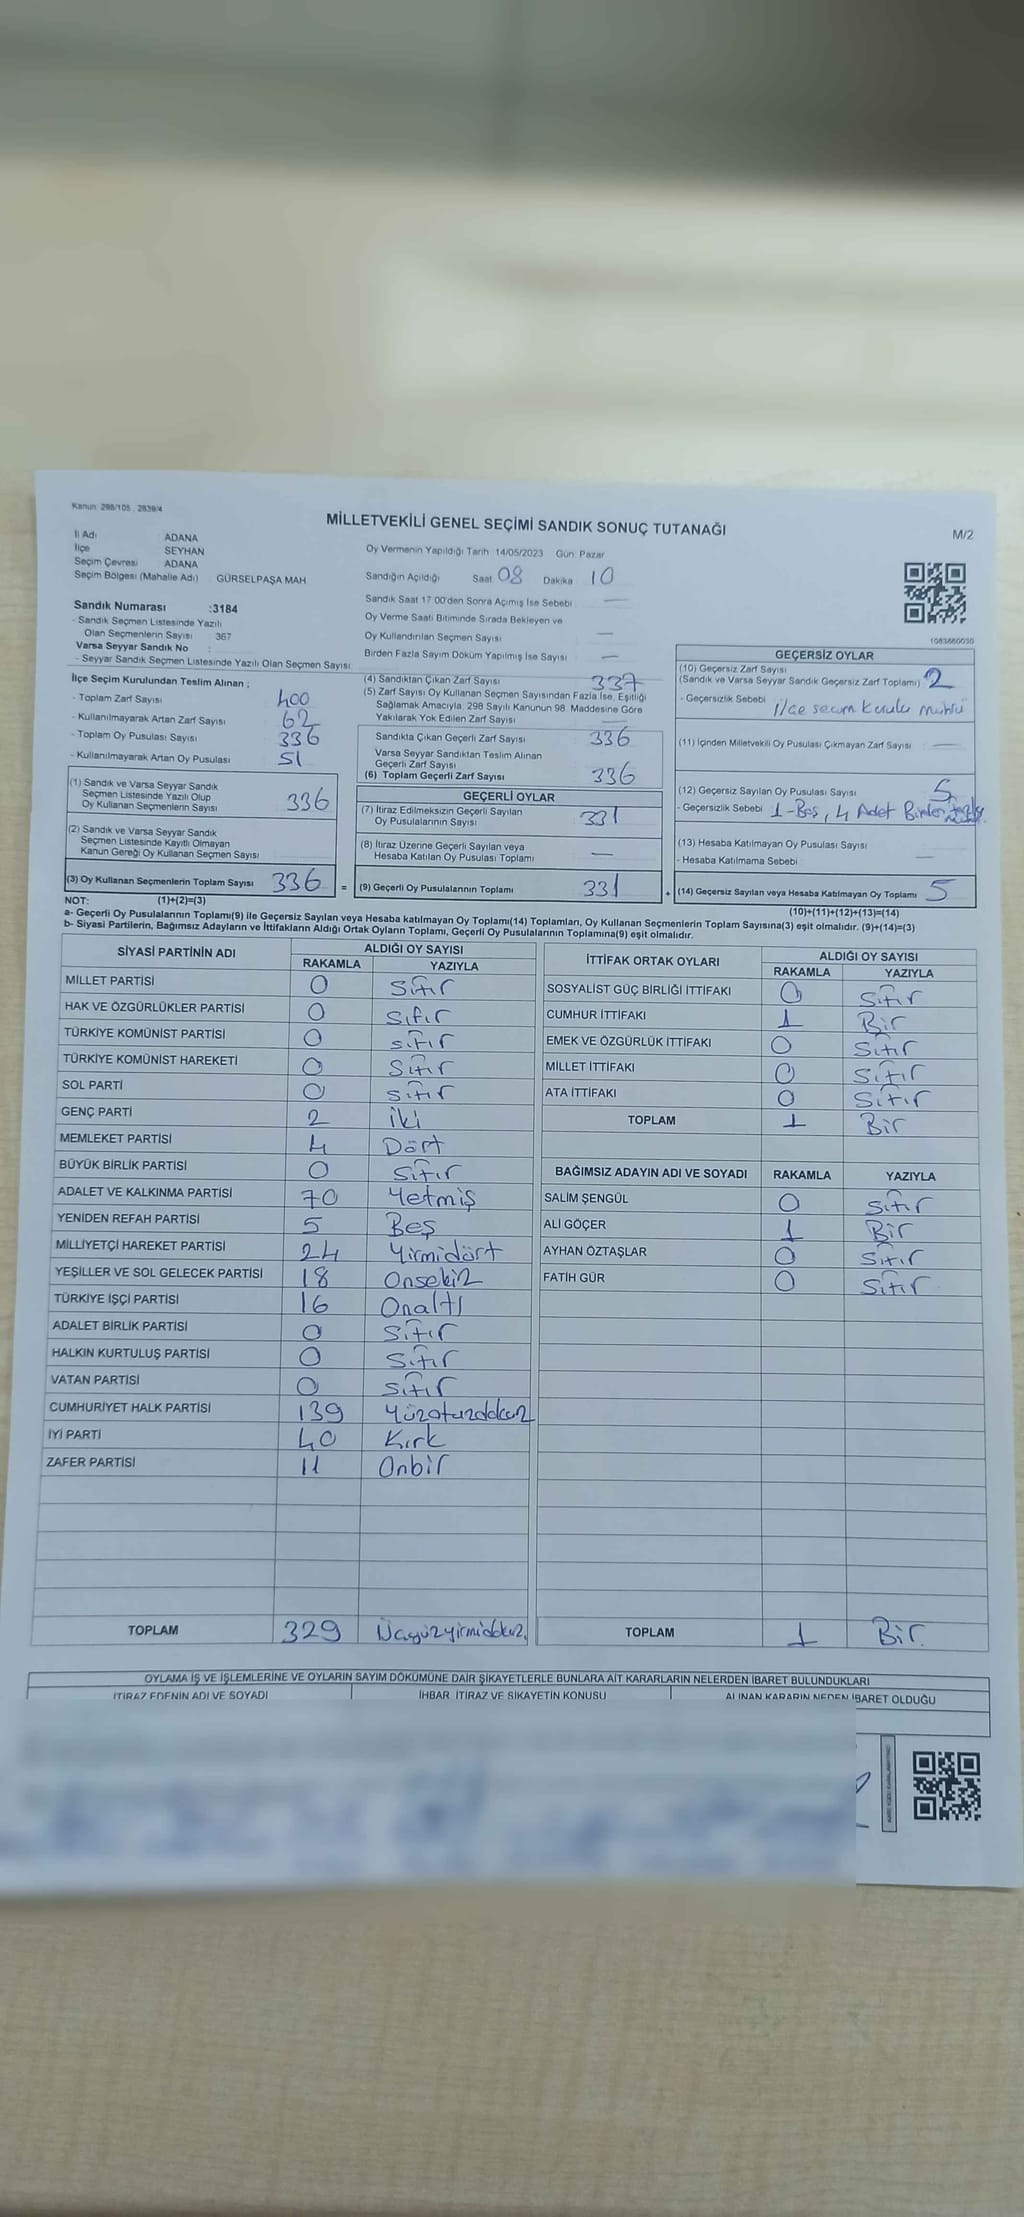 Kanun: 298/105 , 2839/4
MİLLETVEKİLİ GENEL SEÇİMİ SANDIK SONUÇ TUTANAĞI
M/2
İl Adı ADANA
İlçe SEYHAN
Seçim Çevresi ADANA
Seçim Bölgesi (Mahalle Adı) GÜRSELPAŞA MAH
Oy Vermenin Yapıldığı Tarih :14/05/2023 Gün: Pazar
Sandığın Açıldığı Saat 08 Dakika 10
Sandık Saat 17:00'den Sonra Açmış İse Sebebi —
Oy Verme Saati Bitiminde Sırada Bekleyen ve
Oy Kullandırılan Seçmen Sayısı —
Birden Fazla Sayım Döküm Yapılmış İse Sayısı —
1083660030
Sandık Numarası :3184
- Sandık Seçmen Listesinde Yazılı
Olan Seçmenlerin Sayısı : 367
Varsa Seyyar Sandık No :
- Seyyar Sandık Seçmen Listesinde Yazılı Olan Seçmen Sayısı:
İlçe Seçim Kurulundan Teslim Alınan ;
- Toplam Zarf Sayısı 400
- Kullanılmayarak Artan Zarf Sayısı 62
- Toplam Oy Pusulası Sayısı 336
- Kullanılmayarak Artan Oy Pusulası 51
(1) Sandık ve Varsa Seyyar Sandık
Seçmen Listesinde Yazılı Olup
Oy Kullanan Seçmenlerin Sayısı 336
(2) Sandık ve Varsa Seyyar Sandık
Seçmen Listesinde Kayıtlı Olmayan
Kanun Gereği Oy Kullanan Seçmen Sayısı
(3) Oy Kullanan Seçmenlerin Toplam Sayısı 336 =
(4) Sandıktan Çıkan Zarf Sayısı 337
(5) Zarf Sayısı Oy Kullanan Seçmen Sayısından Fazla İse, Eşitliği
Sağlamak Amacıyla, 298 Sayılı Kanunun 98. Maddesine Göre
Yakılarak Yok Edilen Zarf Sayısı —
Sandıkta Çıkan Geçerli Zarf Sayısı 336
Varsa Seyyar Sandıktan Teslim Alınan
Geçerli Zarf Sayısı
(6) Toplam Geçerli Zarf Sayısı 336
GEÇERLİ OYLAR
(7) İtiraz Edilmeksizin Geçerli Sayılan
Oy Pusulalarının Sayısı 331
(8) İtiraz Üzerine Geçerli Sayılan veya
Hesaba Katılan Oy Pusulası Toplamı —
(9) Geçerli Oy Pusulalarının Toplamı 331 +
GEÇERSİZ OYLAR
(10) Geçersiz Zarf Sayısı
(Sandık ve Varsa Seyyar Sandık Geçersiz Zarf Toplamı) 2
- Geçersizlik Sebebi ilçe secım kurulu mührü
(11) İçinden Milletvekili Oy Pusulası Çıkmayan Zarf Sayısı —
(12) Geçersiz Sayılan Oy Pusulası Sayısı 5
- Geçersizlik Sebebi 1-Boş, 4 Adet Birden fazla
(13) Hesaba Katılmayan Oy Pusulası Sayısı
- Hesaba Katılmama Sebebi —
(14) Geçersiz Sayılan veya Hesaba Katılmayan Oy Toplamı 5
NOT: (1)+(2)=(3)
(10)+(11)+(12)+(13)=(14)
a- Geçerli Oy Pusulalarının Toplamı(9) ile Geçersiz Sayılan veya Hesaba katılmayan Oy Toplamı(14) Toplamları, Oy Kullanan Seçmenlerin Toplam Sayısına(3) eşit olmalıdır. (9)+(14)=(3)
b- Siyasi Partilerin, Bağımsız Adayların ve İttifakların Aldığı Ortak Oyların Toplamı, Geçerli Oy Pusulalarının Toplamına(9) eşit olmalıdır.
SİYASİ PARTİNİN ADI ALDIĞI OY SAYISI
RAKAMLA YAZIYLA
MİLLET PARTİSİ 0 Sıfır
HAK VE ÖZGÜRLÜKLER PARTİSİ 0 Sıfır
TÜRKİYE KOMÜNİST PARTİSİ 0 Sıfır
TÜRKİYE KOMÜNİST HAREKETİ 0 Sıfır
SOL PARTİ 0 Sıfır
GENÇ PARTİ 2 İki
MEMLEKET PARTİSİ 4 Dört
BÜYÜK BİRLİK PARTİSİ 0 Sıfır
ADALET VE KALKINMA PARTİSİ 70 Yetmiş
YENİDEN REFAH PARTİSİ 5 Beş
MİLLİYETÇİ HAREKET PARTİSİ 24 Yirmidört
YEŞİLLER VE SOL GELECEK PARTİSİ 18 Onsekiz
TÜRKİYE İŞÇİ PARTİSİ 16 Onaltı
ADALET BİRLİK PARTİSİ 0 Sıfır
HALKIN KURTULUŞ PARTİSİ 0 Sıfır
VATAN PARTİSİ 0 Sıfır
CUMHURİYET HALK PARTİSİ 139 Yüzotuzdokuz
İYİ PARTİ 40 Kırk
ZAFER PARTİSİ 11 Onbir
TOPLAM 329 Üçyüzyirmidokuz
İTTİFAK ORTAK OYLARI ALDIĞI OY SAYISI
RAKAMLA YAZIYLA
SOSYALİST GÜÇ BİRLİĞİ İTTİFAKI 0 Sıfır
CUMHUR İTTİFAKI 1 Bir
EMEK VE ÖZGÜRLÜK İTTİFAKI 0 Sıfır
MİLLET İTTİFAKI 0 Sıfır
ATA İTTİFAKI 0 Sıfır
TOPLAM 1 Bir
BAĞIMSIZ ADAYIN ADI VE SOYADI RAKAMLA YAZIYLA
SALİM ŞENGÜL 0 Sıfır
ALİ GÖÇER 1 Bir
AYHAN ÖZTAŞLAR 0 Sıfır
FATİH GÜR 0 Sıfır
TOPLAM 1 Bir.
OYLAMA İŞ VE İŞLEMLERİNE VE OYLARIN SAYIM DÖKÜMÜNE DAİR ŞİKAYETLERLE BUNLARA AİT KARARLARIN NELERDEN İBARET BULUNDUKLARI
İTİRAZ EDENİN ADI VE SOYADI İHBAR, İTİRAZ VE ŞİKAYETİN KONUSU ALINAN KARARIN NEDEN İBARET OLDUĞU